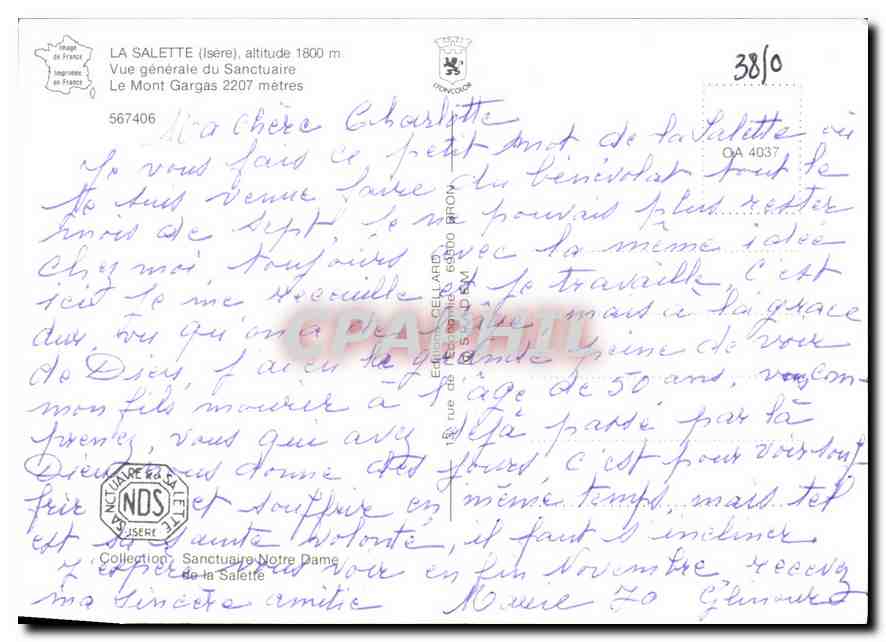 Image
de France
Imprimée
en France
LA SALETTE (Isère), altitude 1800 m
Vue générale du Sanctuaire
Le Mont Gargas 2207 mètres
567406
LYONCOLOR
38/0
OA 4037
Ma chère Charlotte
Je vous fais ce petit mot de la Salette où
Je suis venue faire du bénévolat tout le
mois de Sept, Je ne pouvais plus rester
chez moi toujours avec la même idée
ici Je me recueille et Je travaille, C'est
dur, Vu qu'on a de l'âge mais à la grace
de Dieu, J'ai eu la grande peine de voir
mon fils mourir à l'âge de 50 ans, vous com-
prenez, vous qui avez déjà passé par là
Dieu nous donne des jours, c'est pour voir souf
frir et souffrir en même temps, mais tel
est sa sainte volonté, il faut s'incliner.
J'espère vous voir en fin Novembre recevez
ma sincère amitié Marie Jo
Editions CELLARD
15, rue de l'Economie 69500 BRON
CPAPHIL
SANCTUAIRE DE LA SALETTE
NDS
ISERE
Collection: Sanctuaire Notre Dame
de la Salette